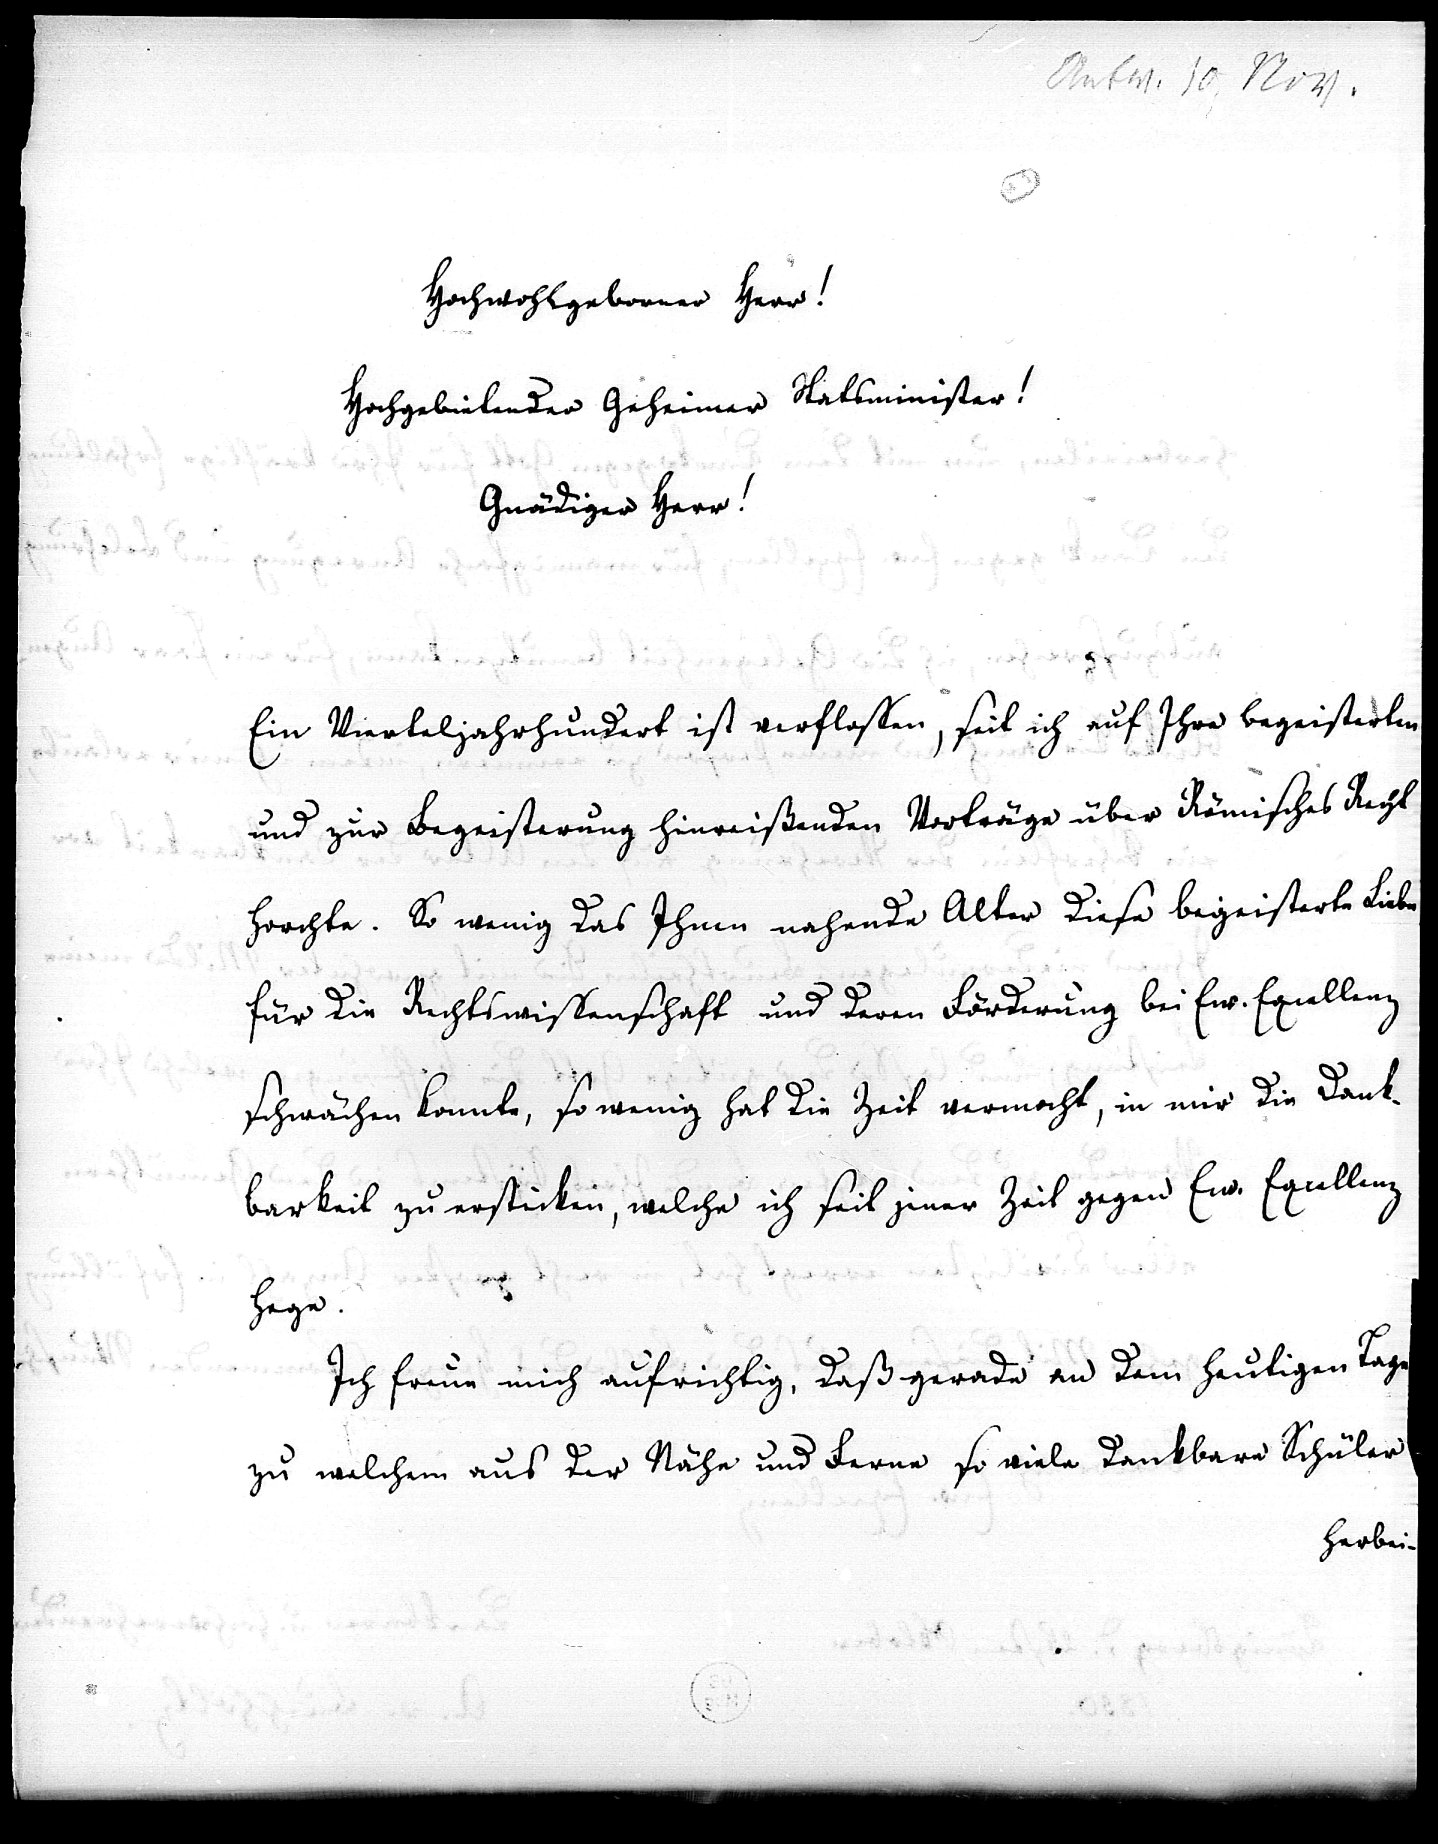 Antw. 10. Nov.
Hochwohlgeborner Herr!
Hochgebietender Geheimer Statsminister!
Gnädiger Herr!
Ein Vierteljahrhundert ist verflossen, seit ich auf Ihre begeisterten
und zur Begeisterung hinreißenden Vorträge über Römisches Recht
horchte. So wenig das Ihnen nahende Alter diese begeisterte Liebe
für die Rechtswissenschaft und deren Förderung bei Ew. Excellenz
schwächen konnte, so wenig hat die Zeit vermocht, in mir die Dank-
barkeit zu ersticken, welche ich seit jener Zeit gegen Ew. Excellenz
hege.
Ich freue mich aufrichtig, daß gerade an dem heutigen Tage
zu welchem aus der Nähe und Ferne so viele dankbare Schüler
herbei-